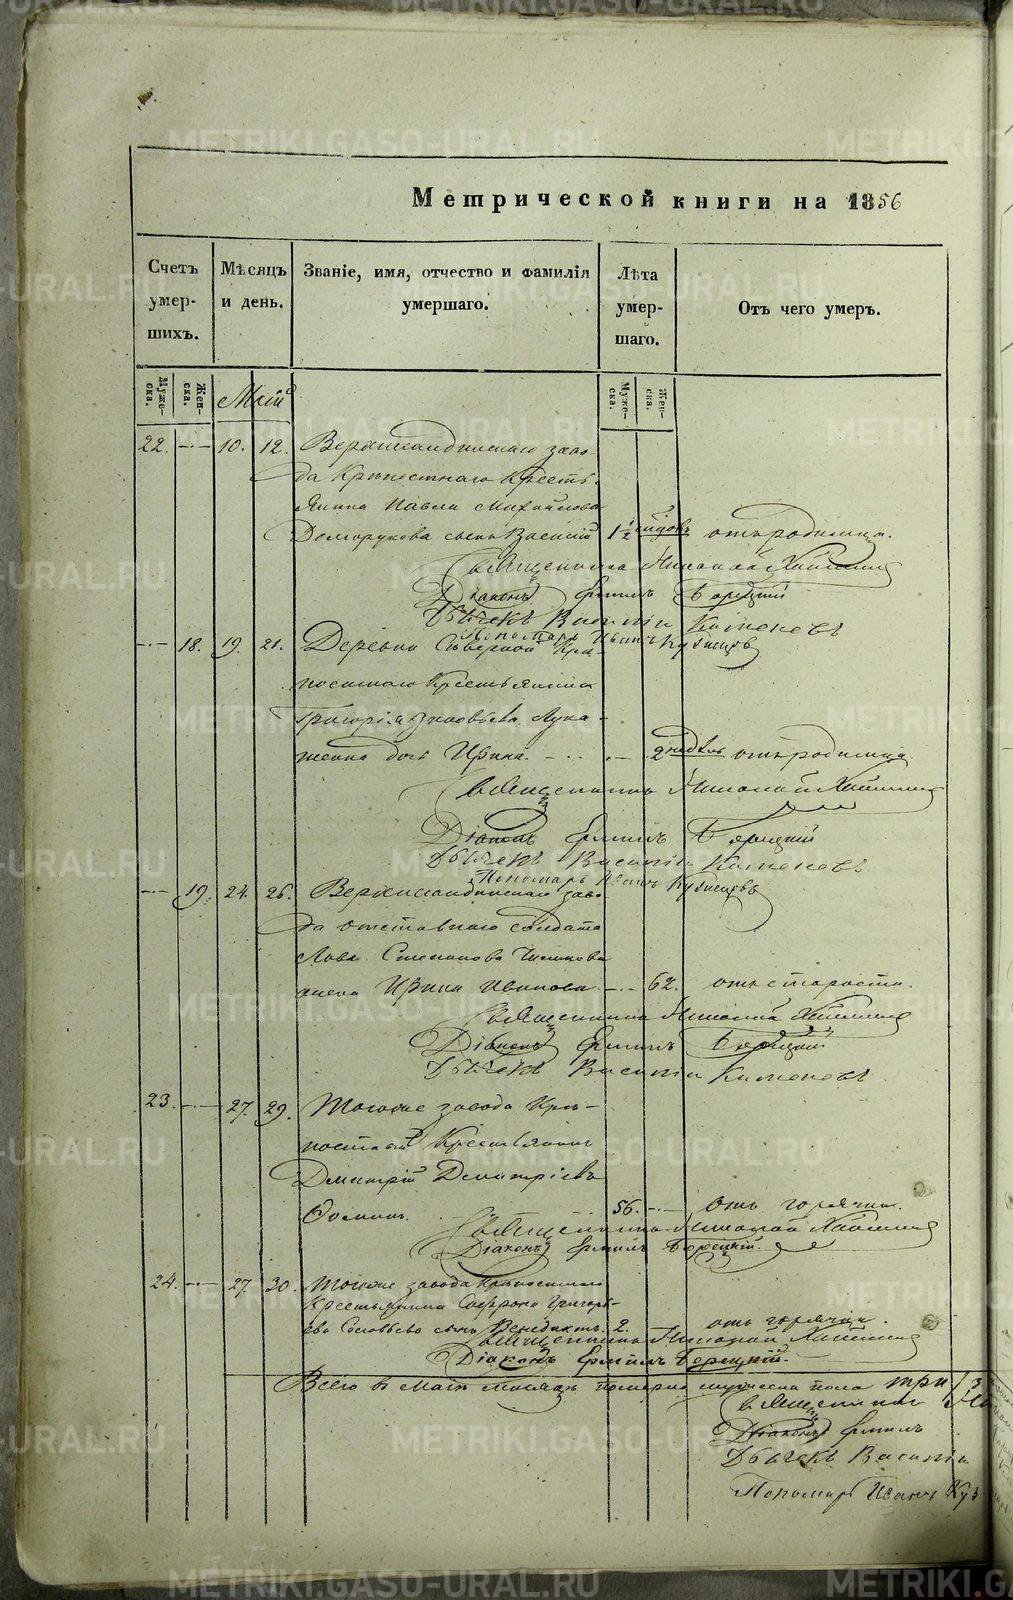 METRIKI.GASO-URAL.RU
Метрической книги на 1856
Счетъ умер-шихъ.
Мѣсяцъ и день.
Званіе, имя, отчество и фамилія умершаго.
Лѣта умер-шаго.
Отъ чего умеръ.
Муже-ска.
Жен-ска.
Маій
Муже-ска.
Жен-ска.
22. 10. 12. Верхисландинскаго заво-
да Крѣпостнаго Кресть-
янина Павла Михайлова
Долгорукова сынъ Василій 1 1/2 отъ родимца.
Священникъ Николай
Діаконъ Ермилъ Борецкій
Дьячекъ Василій Каменевъ
Пономарь Иванъ Кузнецовъ
18. 19. 21. Деревни Сѣверной Крѣ-
постнаго Крестьянина
Григорія Зиновьева Лука-
дочь Ирина. 2 недѣль отъ родимца
Священникъ Николай
Діаконъ Ермилъ Борецкій
Дьячекъ Василій Каменевъ
Пономарь Иванъ Кузнецовъ
19. 24. 26. Верхисландинскаго заво-
да отставнаго солдата
Степанова
жена Ирина Иванова 62. отъ старости.
Священникъ Николай
Діаконъ Ермилъ Борецкій
Дьячекъ Василій Каменевъ
23. 27. 29. Тогоже завода Крѣ-
постный Крестьянинъ
Дмитрій Дмитріевъ
Ѳоминъ. 56. отъ горячки.
Священникъ Николай
Діаконъ Ермилъ Борецкій.
24. 27. 30. Тогоже завода Крѣпостнаго
Крестьянина Софрона Григорь-
ева Соловьева сынъ Венедиктъ. 2. отъ горячки.
Священникъ Николай
Діаконъ Ермилъ Борецкій.
Всего въ Маіѣ мѣсяцѣ померло мужеска пола три /3
Священникъ
Діаконъ Ермилъ
Дьячекъ Василій
Пономарь Иванъ Куз